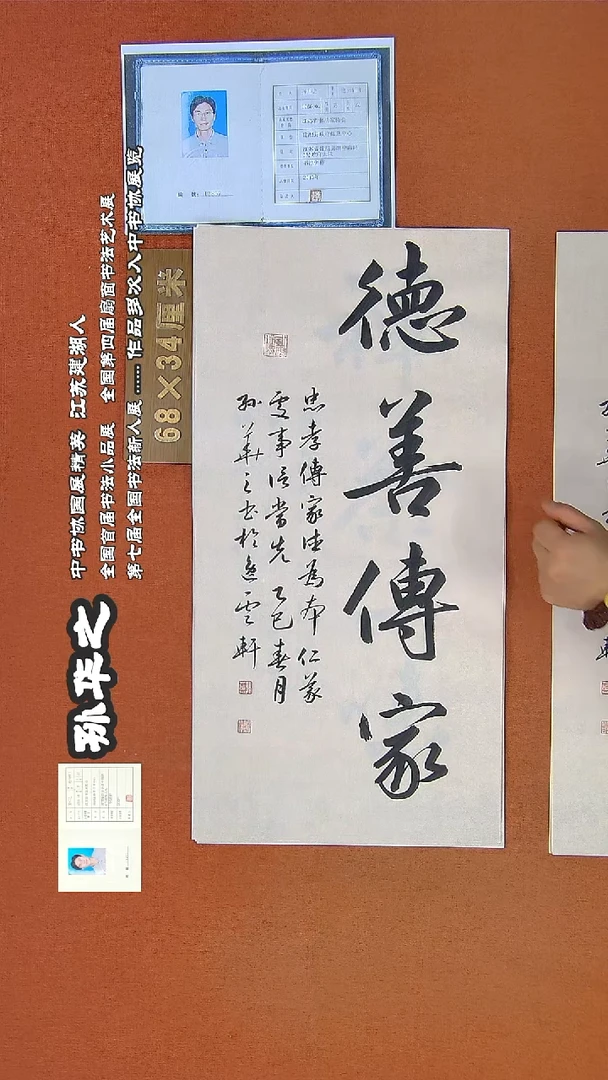 德善傳家
忠孝傳家德為本 仁義
處事信當先 乙巳春月
孙華之书於逸雲軒
68×34厘米
孙华之
中书协国展精英 江苏建湖人
全国首届书法小品展 全国第四届扇面书法艺术展
第七届全国书法新人展......作品多次入中书协展览